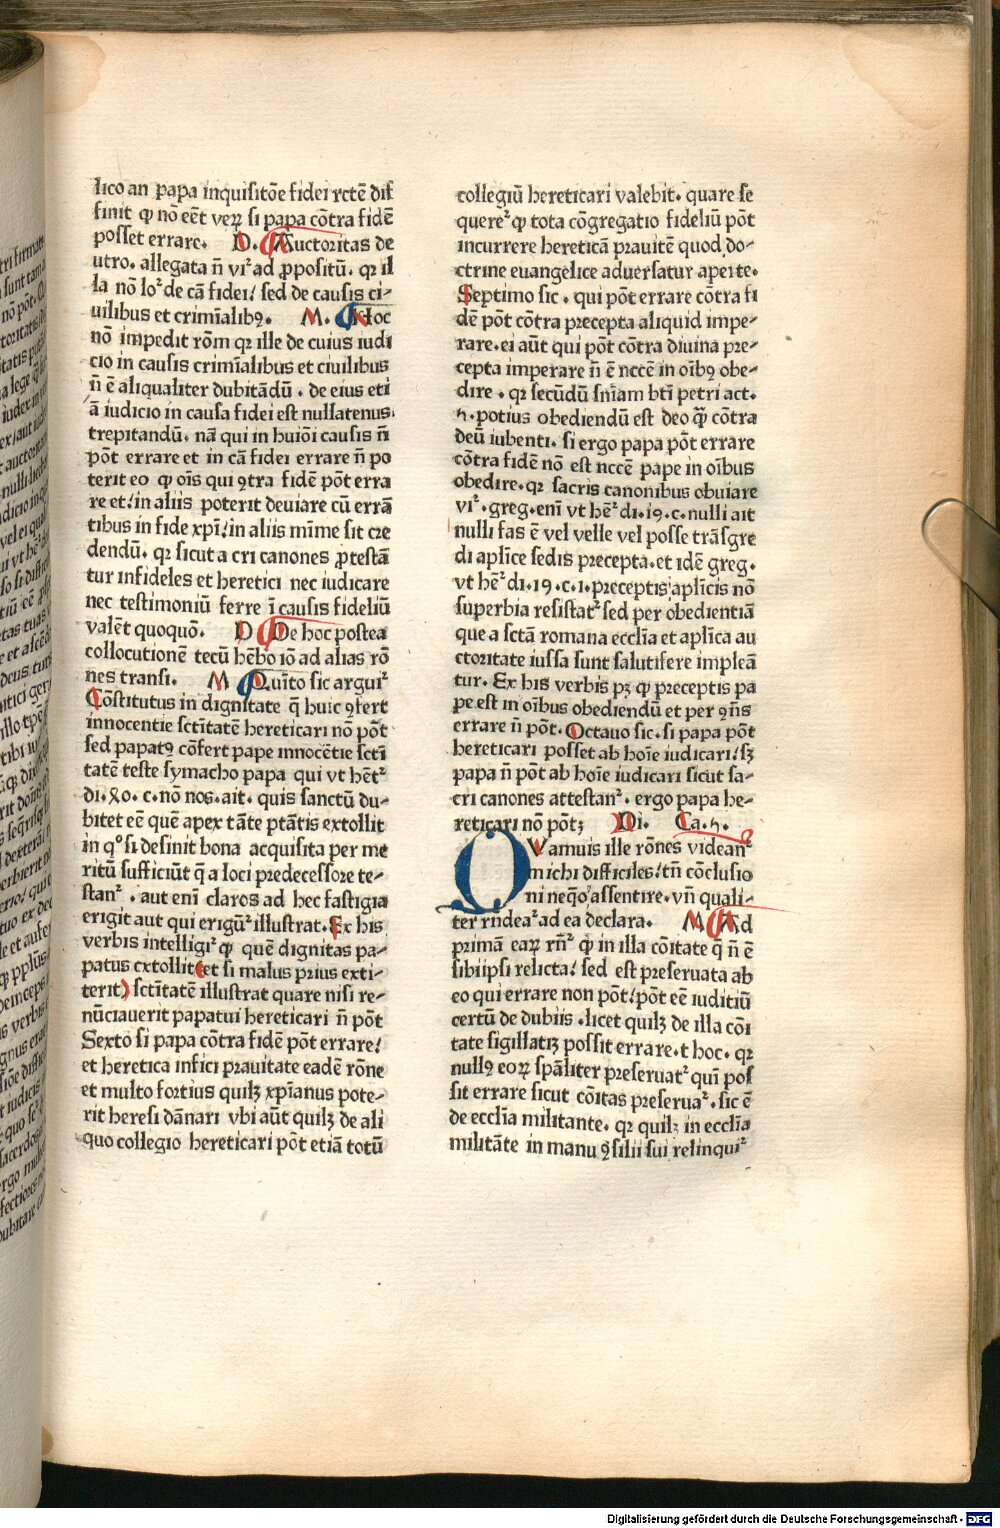 lico an papa inquisitōe fidei rctē dif
finit ꝙ nō eēt veꝝ si papa cōtra fidē
posset errare. D. Auctoritas de
utro. allegata n̄ vr̄ ad ꝓpositū. qꝛ il
la nō loꝛ̄ de cā fidei/ sed de causis ci-
uilibus et crimīalibꝰ. M. Hoc
nō impedit rōm qꝛ ille de cuius iudi
cio in causis crimīalibus et ciuilibus
n̄ ē aliqualiter dubitādū. de eius eti
ā iudicio in causa fidei est nullatenus
trepitandū. nā qui in huiōi causis n̄
pōt errare et in cā fidei errare n̄ po
terit eo ꝙ oīs qui ꝯtra fidē pōt erra
re et/ in aliis poterit deuiare cū errā
tibus in fide xp̄i/ in aliis mīme sit cre
dendū. qꝛ sicut a cri canones ꝓtestā
tur infideles et heretici nec iudicare
nec testimoniū ferre ī causis fideliū
valēt quoquō. D De hoc postea
collocutionē tecū hēbo iō ad alias rō
nes transi. M Quīto sic arguiꝛ̄
Cōstitutus in dignitate q̄ huic ꝯfert
innocentie sctītatē hereticari nō pōt
sed papatꝰ cōfert pape innocētie sctī
tatē teste symacho papa qui vt hētꝛ̄
di. xo. c. nō nos. ait. quis sanctū du-
bitet eē quē apex tāte ptātis extollit
in qº si desinit bona acquisita per me
ritū sufficiūt q̄ a loci predecessore te-
stanꝛ̄. aut enī claros ad hec fastigia
erigit aut qui erigūꝛ̄ illustrat. Ex his
verbis intelligiꝛ̄ ꝙ quē dignitas pa-
patus extollit (et si malus prius exti-
terit) sctītatē illustrat quare nisi re-
nūciauerit papatui hereticari n̄ pōt
Sexto si papa cōtra fidē pōt errare/
et heretica infici prauitate eadē rōne
et multo fortius quilꝫ xp̄ianus pote-
rit heresi dānari vbi aūt quilꝫ de ali
quo collegio hereticari pōt etiā totū
collegiū hereticari valebit. quare se
quereꝛ̄ ꝙ tota cōgregatio fideliū pōt
incurrere hereticā prauitē quod do-
ctrine euangelice aduersatur aperte.
Septimo sic. qui pōt errare cōtra fi
dē pōt cōtra precepta aliquid impe-
rare. ei aūt qui pōt cōtra diuina pre-
cepta imperare n̄ ē nccē in oībꝰ obe-
dire. qꝛ secūdū sn̄iam btī petri act.
5. potius obediendū est deo q̄ cōtra
deū iubenti. si ergo papa pōt errare
cōtra fidē nō est nccē pape in oībus
obedire. qꝛ sacris canonibus obuiare
vr̄. greg. enī vt hēꝛ̄ di. 19. c. nulli ait
nulli fas ē vel velle vel posse trāsgre
di aplīce sedis precepta. et idē greg.
vt hēꝛ̄ di. 19. c. 1. preceptis aplīcis nō
superbia resistatꝛ̄ sed per obedientiā
que a sctā romana ecclīa et aplīca au
ctoritate iussa sunt salutifere impleā
tur. Ex his verbis pꝫ ꝙ preceptis pa
pe est in oībus obediendū et per ꝯn̄s
errare n̄ pōt. Octauo sic. si papa pōt
hereticari posset ab hoīe iudicari/ sꝫ
papa n̄ pōt ab hoīe iudicari sicut sa-
cri canones attestanꝛ̄. ergo papa he-
reticari nō pōtꝫ Di. Ca. 5.
QVamuis ille rōnes videanꝛ̄
michi difficiles/ tn̄ cōclusio
ni neqō assentire. vn̄ quali-
ter rn̄deaꝛ̄ ad ea declara. M Ad
primā eaꝝ rn̄ꝛ̄ ꝙ in illa cōitate q̄ n̄ ē
sibiipsi relicta/ sed est preseruata ab
eo qui errare non pōt/ pōt eē iuditiū
certū de dubiis. licet quilꝫ de illa cōi
tate sigillatiꝫ possit errare. t hoc. qꝛ
nullꝰ eoꝝ spāliter preseruatꝛ̄ quī pos
sit errare sicut cōitas preseruaꝛ̄. sic ē
de ecclīa militante. qꝛ quilꝫ in ecclīa
militāte in manu ꝯsilii sui relinquiꝛ̄
Digitalisierung gefördert durch die Deutsche Forschungsgemeinschaft - DFG